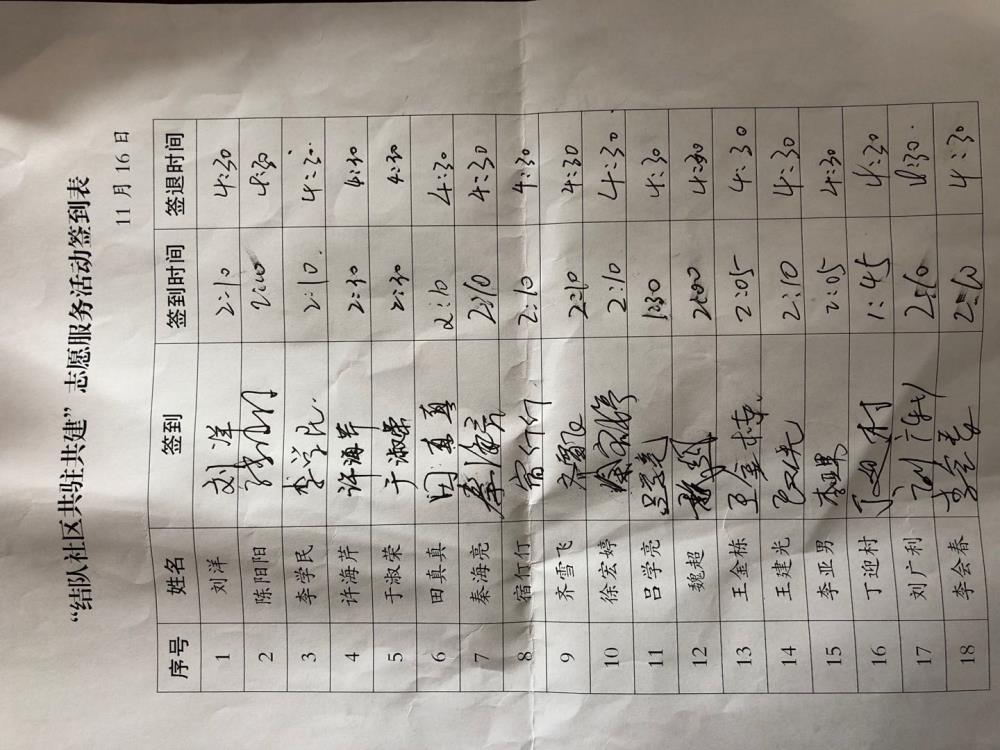 “结队社区共驻共建”志愿服务活动签到表
11月16日
序号 姓名 签到 签到时间 签退时间
1 刘洋 刘洋 2:10 4:30
2 陈阳阳 陈阳阳 2:00 4:30
3 李学民 李学民 2:10 4:30
4 许海芹 许海芹 2:30 4:30
5 于淑荣 于淑荣 2:30 4:30
6 田真真 田真真 2:10 4:30
7 秦海亮 秦海亮 2:10 4:30
8 宿仃仃 宿仃仃 2:10 4:30
9 齐雪飞 齐雪飞 2:10 4:30
10 徐宏婷 徐宏婷 2:10 4:30
11 吕学亮 吕学亮 1:30 4:30
12 魏超 魏超 2:00 4:30
13 王金栋 王金栋 2:05 4:30
14 王建光 王建光 2:10 4:30
15 李亚男 李亚男 2:05 4:30
16 丁迎村 丁迎村 1:45 4:30
17 刘广利 刘广利 2:10 4:30
18 李会春 李会春 2:10 4:30